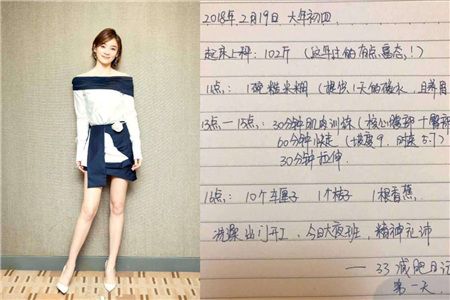 2018年2月19日 大年初四
起床上秤：102斤（这年过的有点嘉态！）
11点：1碗糙米糊（提供1天的碳水，且养胃
13点—15点：30分钟肌肉训练（核心腹部＋臀部
60分钟快走（坡度9，时速5.7）
30分钟拉伸
16点：10个车厘子 1个桔子 1根香蕉
洗澡出门开工，今日大夜班，精神礼沛
——33减肥日记
第一天